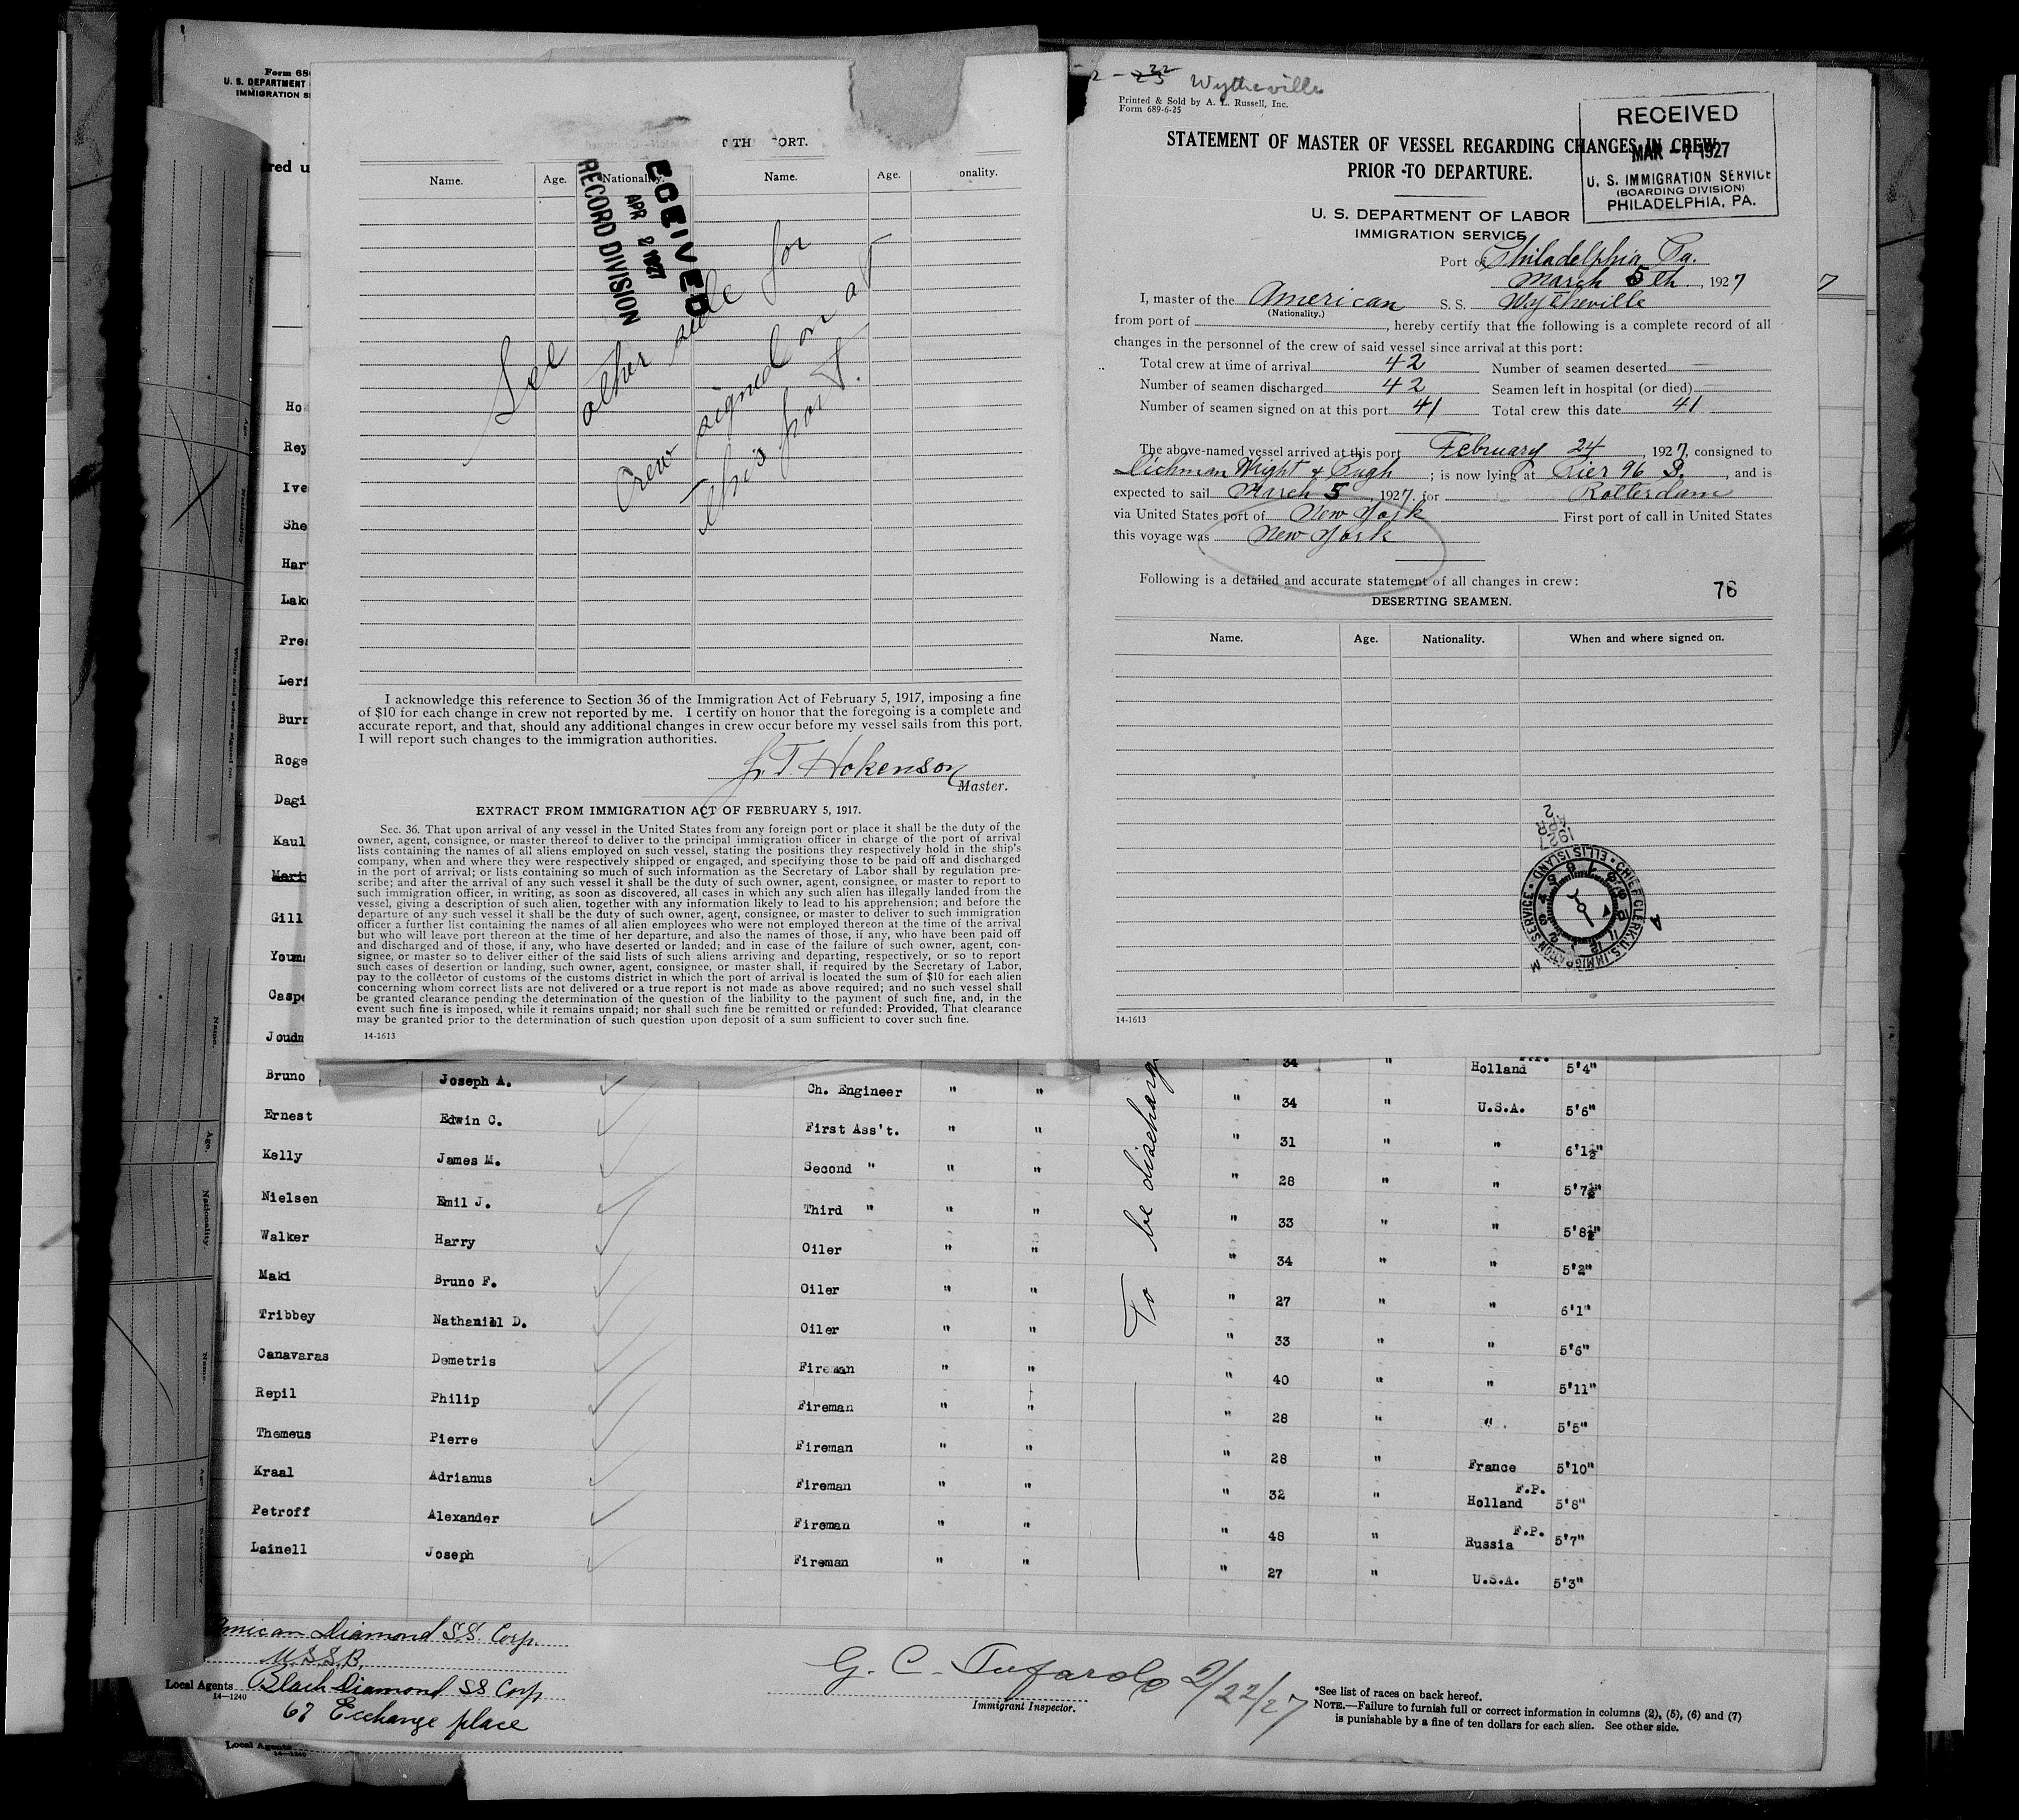 Form 68
U. S. DEPARTMENT
IMMIGRATION S
red u
TH PORT.
Name. Age. Nationality. Name. Age. onality.
ECEIVED
APR 2 1927
RECORD DIVISION
See other side for
crew signed on at
this port.
I acknowledge this reference to Section 36 of the Immigration Act of February 5, 1917, imposing a fine
of $10 for each change in crew not reported by me. I certify on honor that the foregoing is a complete and
accurate report, and that, should any additional changes in crew occur before my vessel sails from this port,
I will report such changes to the immigration authorities.
T. Hokenson
Master.
EXTRACT FROM IMMIGRATION ACT OF FEBRUARY 5, 1917.
Sec. 36. That upon arrival of any vessel in the United States from any foreign port or place it shall be the duty of the
owner, agent, consignee, or master thereof to deliver to the principal immigration officer in charge of the port of arrival
lists containing the names of all aliens employed on such vessel, stating the positions they respectively hold in the ship's
company, when and where they were respectively shipped or engaged, and specifying those to be paid off and discharged
in the port of arrival; or lists containing so much of such information as the Secretary of Labor shall by regulation pre-
scribe; and after the arrival of any such vessel it shall be the duty of such owner, agent, consignee, or master to report to
such immigration officer, in writing, as soon as discovered, all cases in which any such alien has illegally landed from the
vessel, giving a description of such alien, together with any information likely to lead to his apprehension; and before the
departure of any such vessel it shall be the duty of such owner, agent, consignee, or master to deliver to such immigration
officer a further list containing the names of all alien employees who were not employed thereon at the time of the arrival
but who will leave port thereon at the time of her departure, and also the names of those, if any, who have been paid off
and discharged and of those, if any, who have deserted or landed; and in case of the failure of such owner, agent, con-
signee, or master so to deliver either of the said lists of such aliens arriving and departing, respectively, or so to report
such cases of desertion or landing, such owner, agent, consignee, or master shall, if required by the Secretary of Labor,
pay to the collector of customs of the customs district in which the port of arrival is located the sum of $10 for each alien
concerning whom correct lists are not delivered or a true report is not made as above required; and no such vessel shall
be granted clearance pending the determination of the question of the liability to the payment of such fine, and, in the
event such fine is imposed, while it remains unpaid; nor shall such fine be remitted or refunded: Provided, That clearance
may be granted prior to the determination of such question upon deposit of a sum sufficient to cover such fine.
14-1613
2 - 23 22 Wytheville
Printed & Sold by A. L. Russell, Inc.
Form 689-6-25
RECEIVED
MAR - 7 1927
U. S. IMMIGRATION SERVICE
(BOARDING DIVISION)
PHILADELPHIA, PA.
STATEMENT OF MASTER OF VESSEL REGARDING CHANGES IN CREW
PRIOR TO DEPARTURE.
U. S. DEPARTMENT OF LABOR
IMMIGRATION SERVICE
Port of Philadelphia Pa.
March 5th, 1927
7
I, master of the American S. S. Wytheville
(Nationality.)
from port of , hereby certify that the following is a complete record of all
changes in the personnel of the crew of said vessel since arrival at this port:
Total crew at time of arrival 42 Number of seamen deserted
Number of seamen discharged 42 Seamen left in hospital (or died)
Number of seamen signed on at this port 41 Total crew this date 41
The above-named vessel arrived at this port February 24, 1927, consigned to
Dichman Wright & Pugh; is now lying at Pier 96 S., and is
expected to sail March 5, 1927. for Rotterdam
via United States port of New York First port of call in United States
this voyage was New York
Following is a detailed and accurate statement of all changes in crew:
76
DESERTING SEAMEN.
Name. Age. Nationality. When and where signed on.
1927 APR 2
CHIEF CLERK, U.S. IMMIGRATION SERVICE • ELLIS ISLAND •
A M
14-1613
Ho
Rey
Ive
She
Har
Lak
Pre
Leri
Burr
Roge
Dagi
Kaul
Mari
Gill
Youn
Caspe
Joudn
34 " Holland 5'4"
To be discharg
Bruno Joseph A. Ch. Engineer " " " 34 " U.S.A. 5'6"
Ernest Edwin C. First Ass't. " " " 31 " " 6'1½"
Kelly James M. Second " " " " 28 " " 5'7½"
Nielsen Emil J. Third " " " " 33 " " 5'8½"
Walker Harry Oiler " " " 34 " " 5'2"
Maki Bruno F. Oiler " " " 27 " " 6'1"
Tribbey Nathaniel D. Oiler " " " 33 " " 5'6"
Canavaras Demetris Fireman " " " 40 " " 5'11"
Repil Philip Fireman " " " 28 " " 5'5"
Themeus Pierre Fireman " " " 28 " France 5'10"
Kraal Adrianus Fireman " " " 32 " F.P. Holland 5'8"
Petroff Alexander Fireman " " " 48 " F.P. Russia 5'7"
Lainell Joseph Fireman " " " 27 " U.S.A. 5'3"
merican Diamond S.S. Corp.
U.S.S.B.
Local Agents Black Diamond SS Corp
14—1240
67 Exchange place
G. C. Tufarolo 2/22/27
Immigrant Inspector.
*See list of races on back hereof.
NOTE.—Failure to furnish full or correct information in columns (2), (5), (6) and (7)
is punishable by a fine of ten dollars for each alien. See other side.
Local Agents
14—1240
Name.
Age.
Nationality.
When and where signed on.
Name.
Age.
Nationality.
Name.
Age.